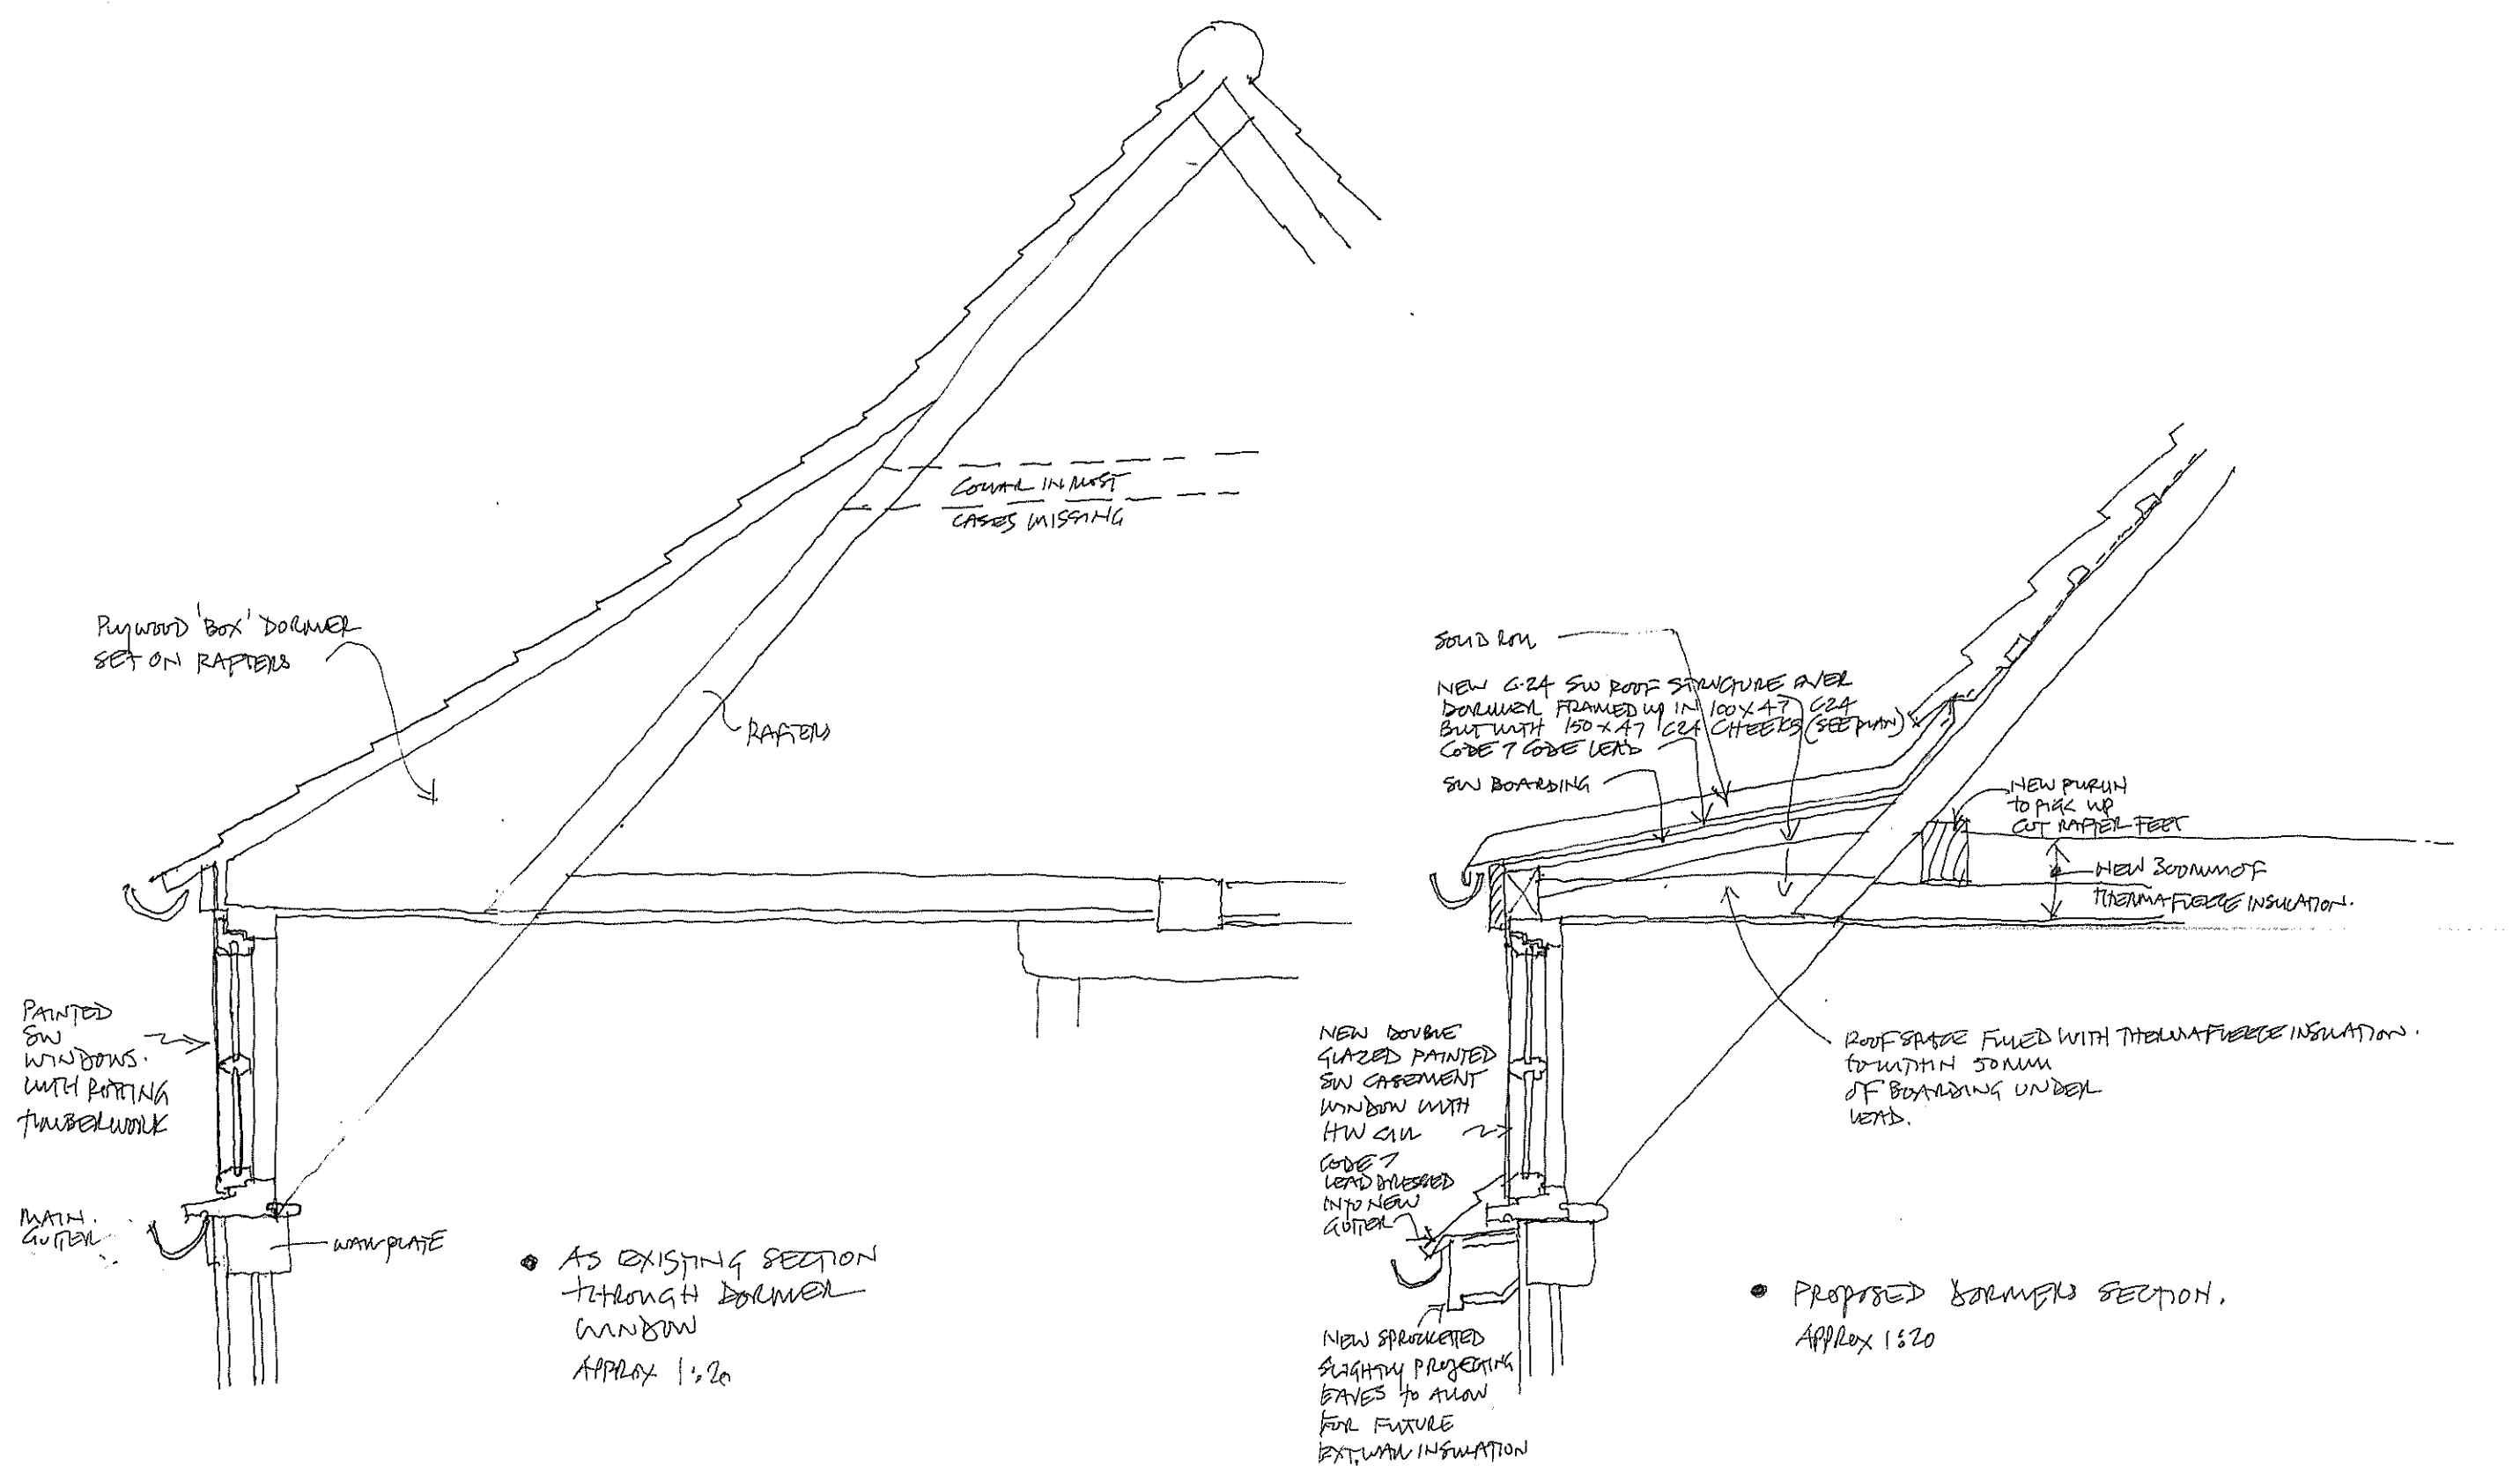 PLYWOOD 'BOX' DORMER
SET ON RAFTERS
COLLAR IN MOST
CASES MISSING
RAFTERS
PAINTED
SW
WINDOWS.
WITH ROTTING
TIMBERWORK
MAIN.
GUTTER
WALL PLATE
AS EXISTING SECTION
THROUGH DORMER
WINDOW
APPROX 1:20
SOLID ROLL
NEW C-24 SW ROOF STRUCTURE OVER
DORMER FRAMED UP IN 100 X 47 C24
BUT WITH 150 X 47 C24 CHEEKS (SEE PLAN)
CODE 7 CODE LEAD
SW BOARDING
NEW PURLIN
TO PICK UP
CUT RAFTER FEET
NEW 300MM OF
THERMAFLEECE INSULATION.
ROOF SPACE FILLED WITH THERMAFLEECE INSULATION.
TO WITHIN 50MM
OF BOARDING UNDER
LEAD.
NEW DOUBLE
GLAZED PAINTED
SW CASEMENT
WINDOW WITH
HW CILL
CODE 7
LEAD DRESSED
INTO NEW
GUTTER
NEW SPROCKETTED
SLIGHTLY PROJECTING
EAVES TO ALLOW
FOR FUTURE
EXT. WALL INSULATION
PROPOSED DORMERS SECTION.
APPROX 1:20